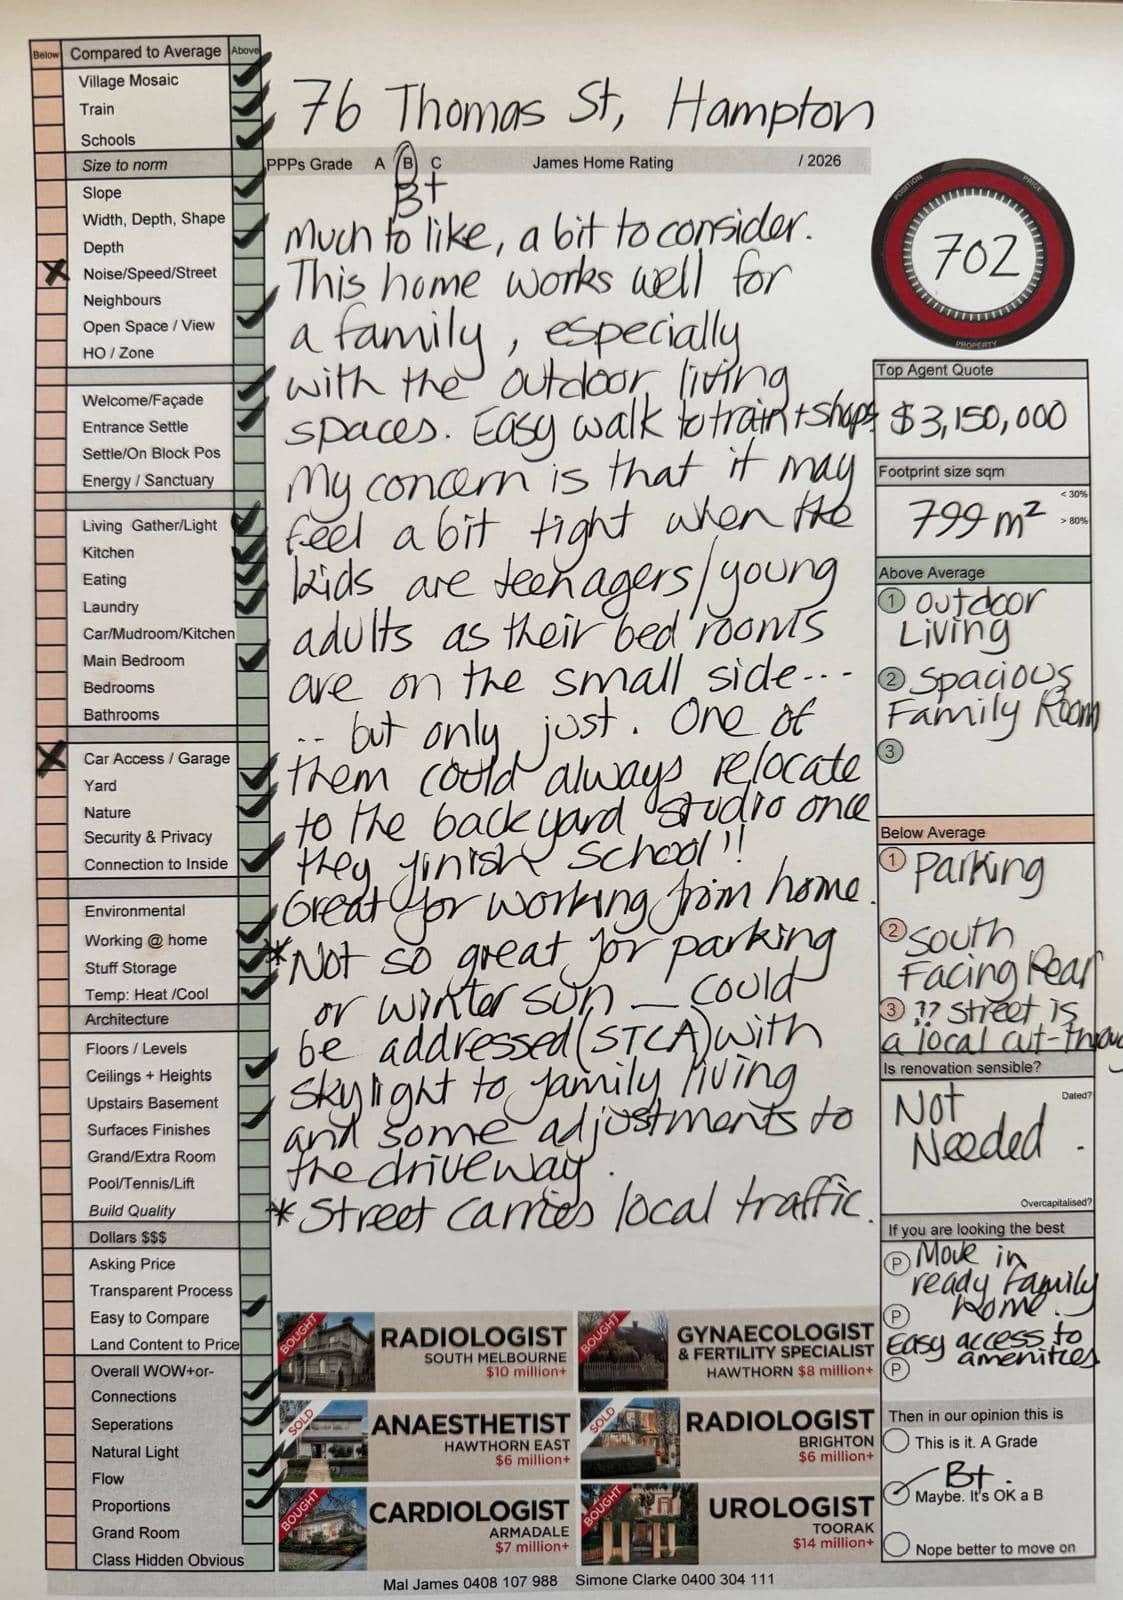 Below Compared to Average Above
Village Mosaic
Train
Schools
Size to norm
Slope
Width, Depth, Shape
Depth
Noise/Speed/Street
Neighbours
Open Space / View
HO / Zone
Welcome/Façade
Entrance Settle
Settle/On Block Pos
Energy / Sanctuary
Living Gather/Light
Kitchen
Eating
Laundry
Car/Mudroom/Kitchen
Main Bedroom
Bedrooms
Bathrooms
Car Access / Garage
Yard
Nature
Security & Privacy
Connection to Inside
Environmental
Working @ home
Stuff Storage
Temp: Heat /Cool
Architecture
Floors / Levels
Ceilings + Heights
Upstairs Basement
Surfaces Finishes
Grand/Extra Room
Pool/Tennis/Lift
Build Quality
Dollars $$$
Asking Price
Transparent Process
Easy to Compare
Land Content to Price
Overall WOW+or-
Connections
Seperations
Natural Light
Flow
Proportions
Grand Room
Class Hidden Obvious
76 Thomas St, Hampton
PPPs Grade A B C James Home Rating / 2026
B+
Much to like, a bit to consider.
This home works well for
a family, especially
with the outdoor living
spaces. Easy walk to train + shops.
My concern is that it may
feel a bit tight when the
kids are teenagers/young
adults as their bed rooms
are on the small side...
.. but only just. One of
them could always relocate
to the backyard studio once
they finish school!!
Great for working from home.
*Not so great for parking
or winter sun — could
be addressed (STCA) with
skylight to family living
and some adjustments to
the driveway.
* Street carries local traffic.
BOUGHT
RADIOLOGIST
SOUTH MELBOURNE
$10 million+
BOUGHT
GYNAECOLOGIST
& FERTILITY SPECIALIST
HAWTHORN $8 million+
SOLD
ANAESTHETIST
HAWTHORN EAST
$6 million+
SOLD
RADIOLOGIST
BRIGHTON
$6 million+
BOUGHT
CARDIOLOGIST
ARMADALE
$7 million+
BOUGHT
UROLOGIST
TOORAK
$14 million+
POSITION
PRICE
702
PROPERTY
Top Agent Quote
$3,150,000
Footprint size sqm
< 30%
799 m²
> 80%
Above Average
1 Outdoor
Living
2 Spacious
Family Room
3
Below Average
1 Parking
2 South
Facing Rear
3 ?? Street is
a local cut-through
Is renovation sensible?
Dated?
Not
Needed.
Overcapitalised?
If you are looking the best
P Move in
ready family
home.
P
Easy access to
amenities
P
Then in our opinion this is
This is it. A Grade
B+.
Maybe. It's OK a B
Nope better to move on
Mal James 0408 107 988 Simone Clarke 0400 304 111